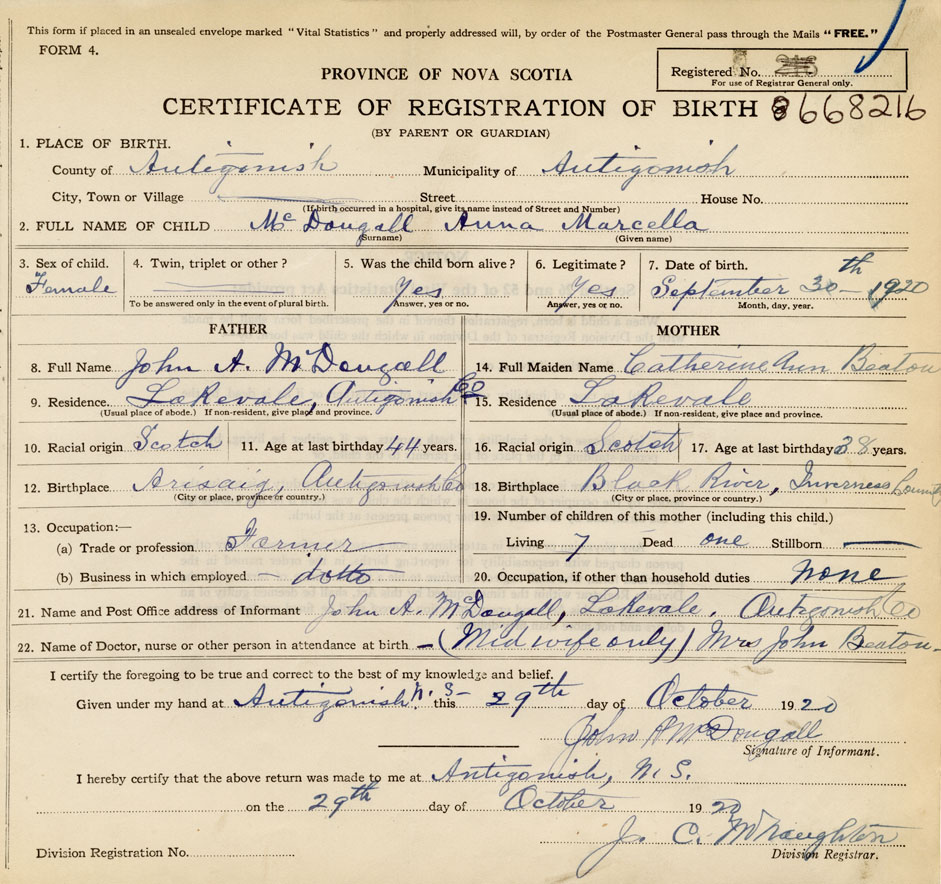 This form if placed in an unsealed envelope marked "Vital Statistics" and properly addressed will, by order of the Postmaster General pass through the Mails "FREE."
FORM 4.
Registered No.
For use of Registrar General only.
PROVINCE OF NOVA SCOTIA
CERTIFICATE OF REGISTRATION OF BIRTH 8668216
(BY PARENT OR GUARDIAN)
1. PLACE OF BIRTH.
County of Antigonish Municipality of Antigonish
City, Town or Village Street House No.
(If birth occurred in a hospital, give its name instead of Street and Number)
2. FULL NAME OF CHILD McDougall Anna Marcella
(Surname) (Given name)
3. Sex of child. 4. Twin, triplet or other? 5. Was the child born alive? 6. Legitimate? 7. Date of birth.
Female Yes Yes September 30th 1920
To be answered only in the event of plural birth. Answer, yes or no. Answer, yes or no. Month, day, year.
FATHER MOTHER
8. Full Name John A. McDougall 14. Full Maiden Name Catherine Ann Beaton
9. Residence Lakevale, Antigonish Co 15. Residence Lakevale
(Usual place of abode.) If non-resident, give place and province. (Usual place of abode.) If non-resident, give place and province.
10. Racial origin Scotch 11. Age at last birthday 44 years. 16. Racial origin Scotch 17. Age at last birthday 38 years.
12. Birthplace Arisaig, Antigonish Co 18. Birthplace Black River, Inverness County
(City or place, province or country.) (City or place, province or country.)
13. Occupation:— 19. Number of children of this mother (including this child.)
(a) Trade or profession Farmer Living 7 Dead one Stillborn —
(b) Business in which employed — ditto 20. Occupation, if other than household duties none
21. Name and Post Office address of Informant John A. McDougall, Lakevale. Antigonish Co
22. Name of Doctor, nurse or other person in attendance at birth — (Mid wife only) Mrs John Beaton
I certify the foregoing to be true and correct to the best of my knowledge and belief.
Given under my hand at Antigonish N.S. this 29th day of October 1920
John A McDougall
Signature of Informant.
I hereby certify that the above return was made to me at Antigonish, N.S.
on the 29th day of October 1920
J. C. McNaughton
Division Registration No. Division Registrar.